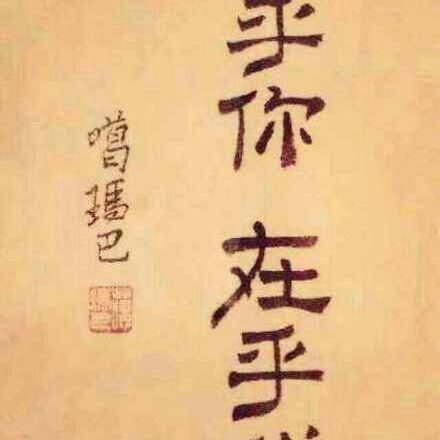 乎你 在乎
噶瑪巴